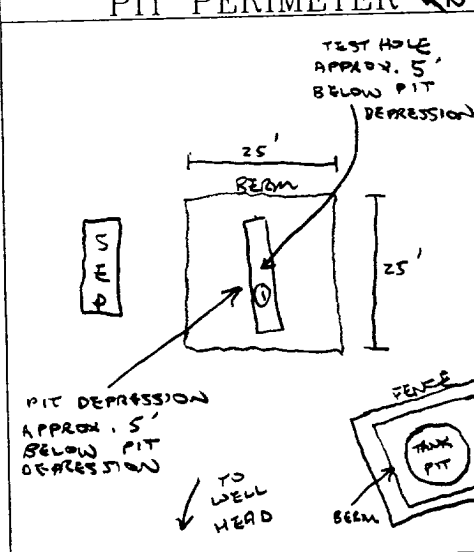 PIT PERIMETER
TEST HOLE
APPROX. 5'
BELOW PIT
DEPRESSION
25'
BERM
SEP
25'
1
PIT DEPRESSION
APPROX. 5'
BELOW PIT
DEPRESSION
FENCE
TANK
PIT
BERM
TO
WELL
HEAD